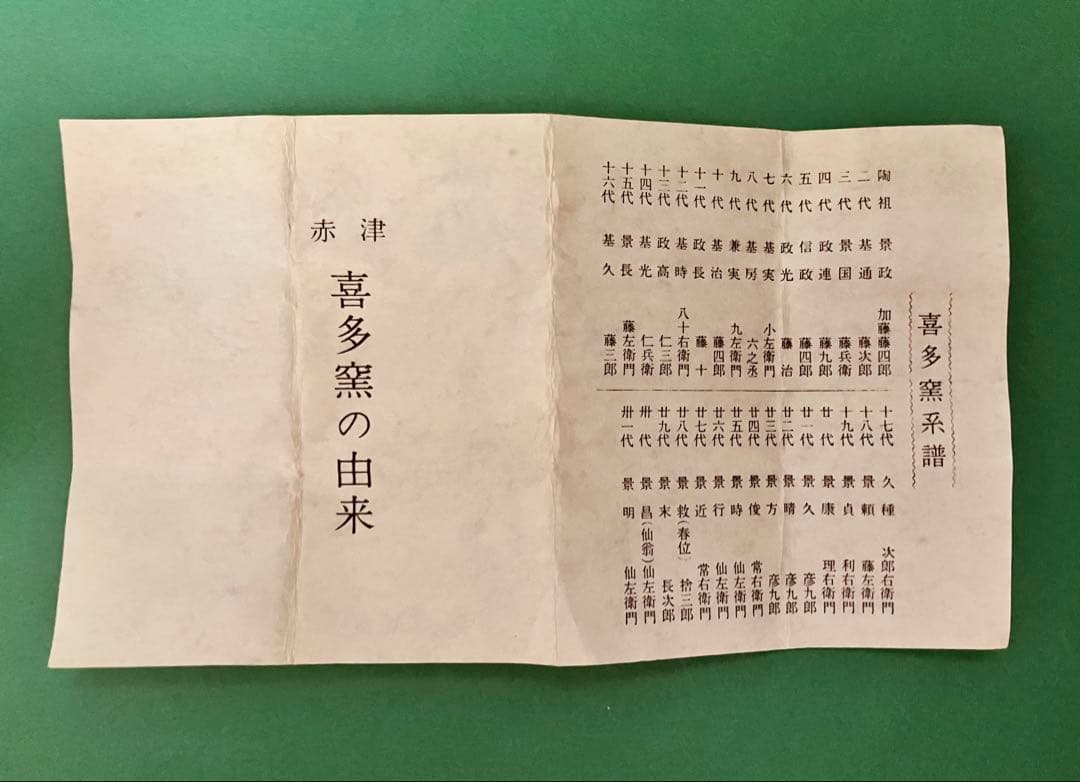 喜多窯系譜
陶祖 景政 加藤藤四郎
二代 基通 藤次郎
三代 景国 藤兵衛
四代 政連 藤九郎
五代 信政 藤四郎
六代 政光 藤治
七代 基実 小左衛門
八代 基房 六之丞
九代 兼実 九左衛門
十代 基治 藤四郎
十一代 政長 藤十
十二代 基時 八十右衛門
十三代 政高 仁三郎
十四代 基光 仁兵衛
十五代 景長 藤左衛門
十六代 基久 藤三郎
十七代 久種 次郎右衛門
十八代 景頼 藤左衛門
十九代 景貞 利右衛門
廿代 景康 理右衛門
廿一代 景久 彦九郎
廿二代 景晴 彦九郎
廿三代 景方 彦九郎
廿四代 景俊 常右衛門
廿五代 景時 仙左衛門
廿六代 景行 仙左衛門
廿七代 景近 常右衛門
廿八代 景救(春位) 捨三郎
廿九代 景末 長次郎
卅代 景昌(仙翁) 仙左衛門
卅一代 景明 仙左衛門
赤津
喜多窯の由来